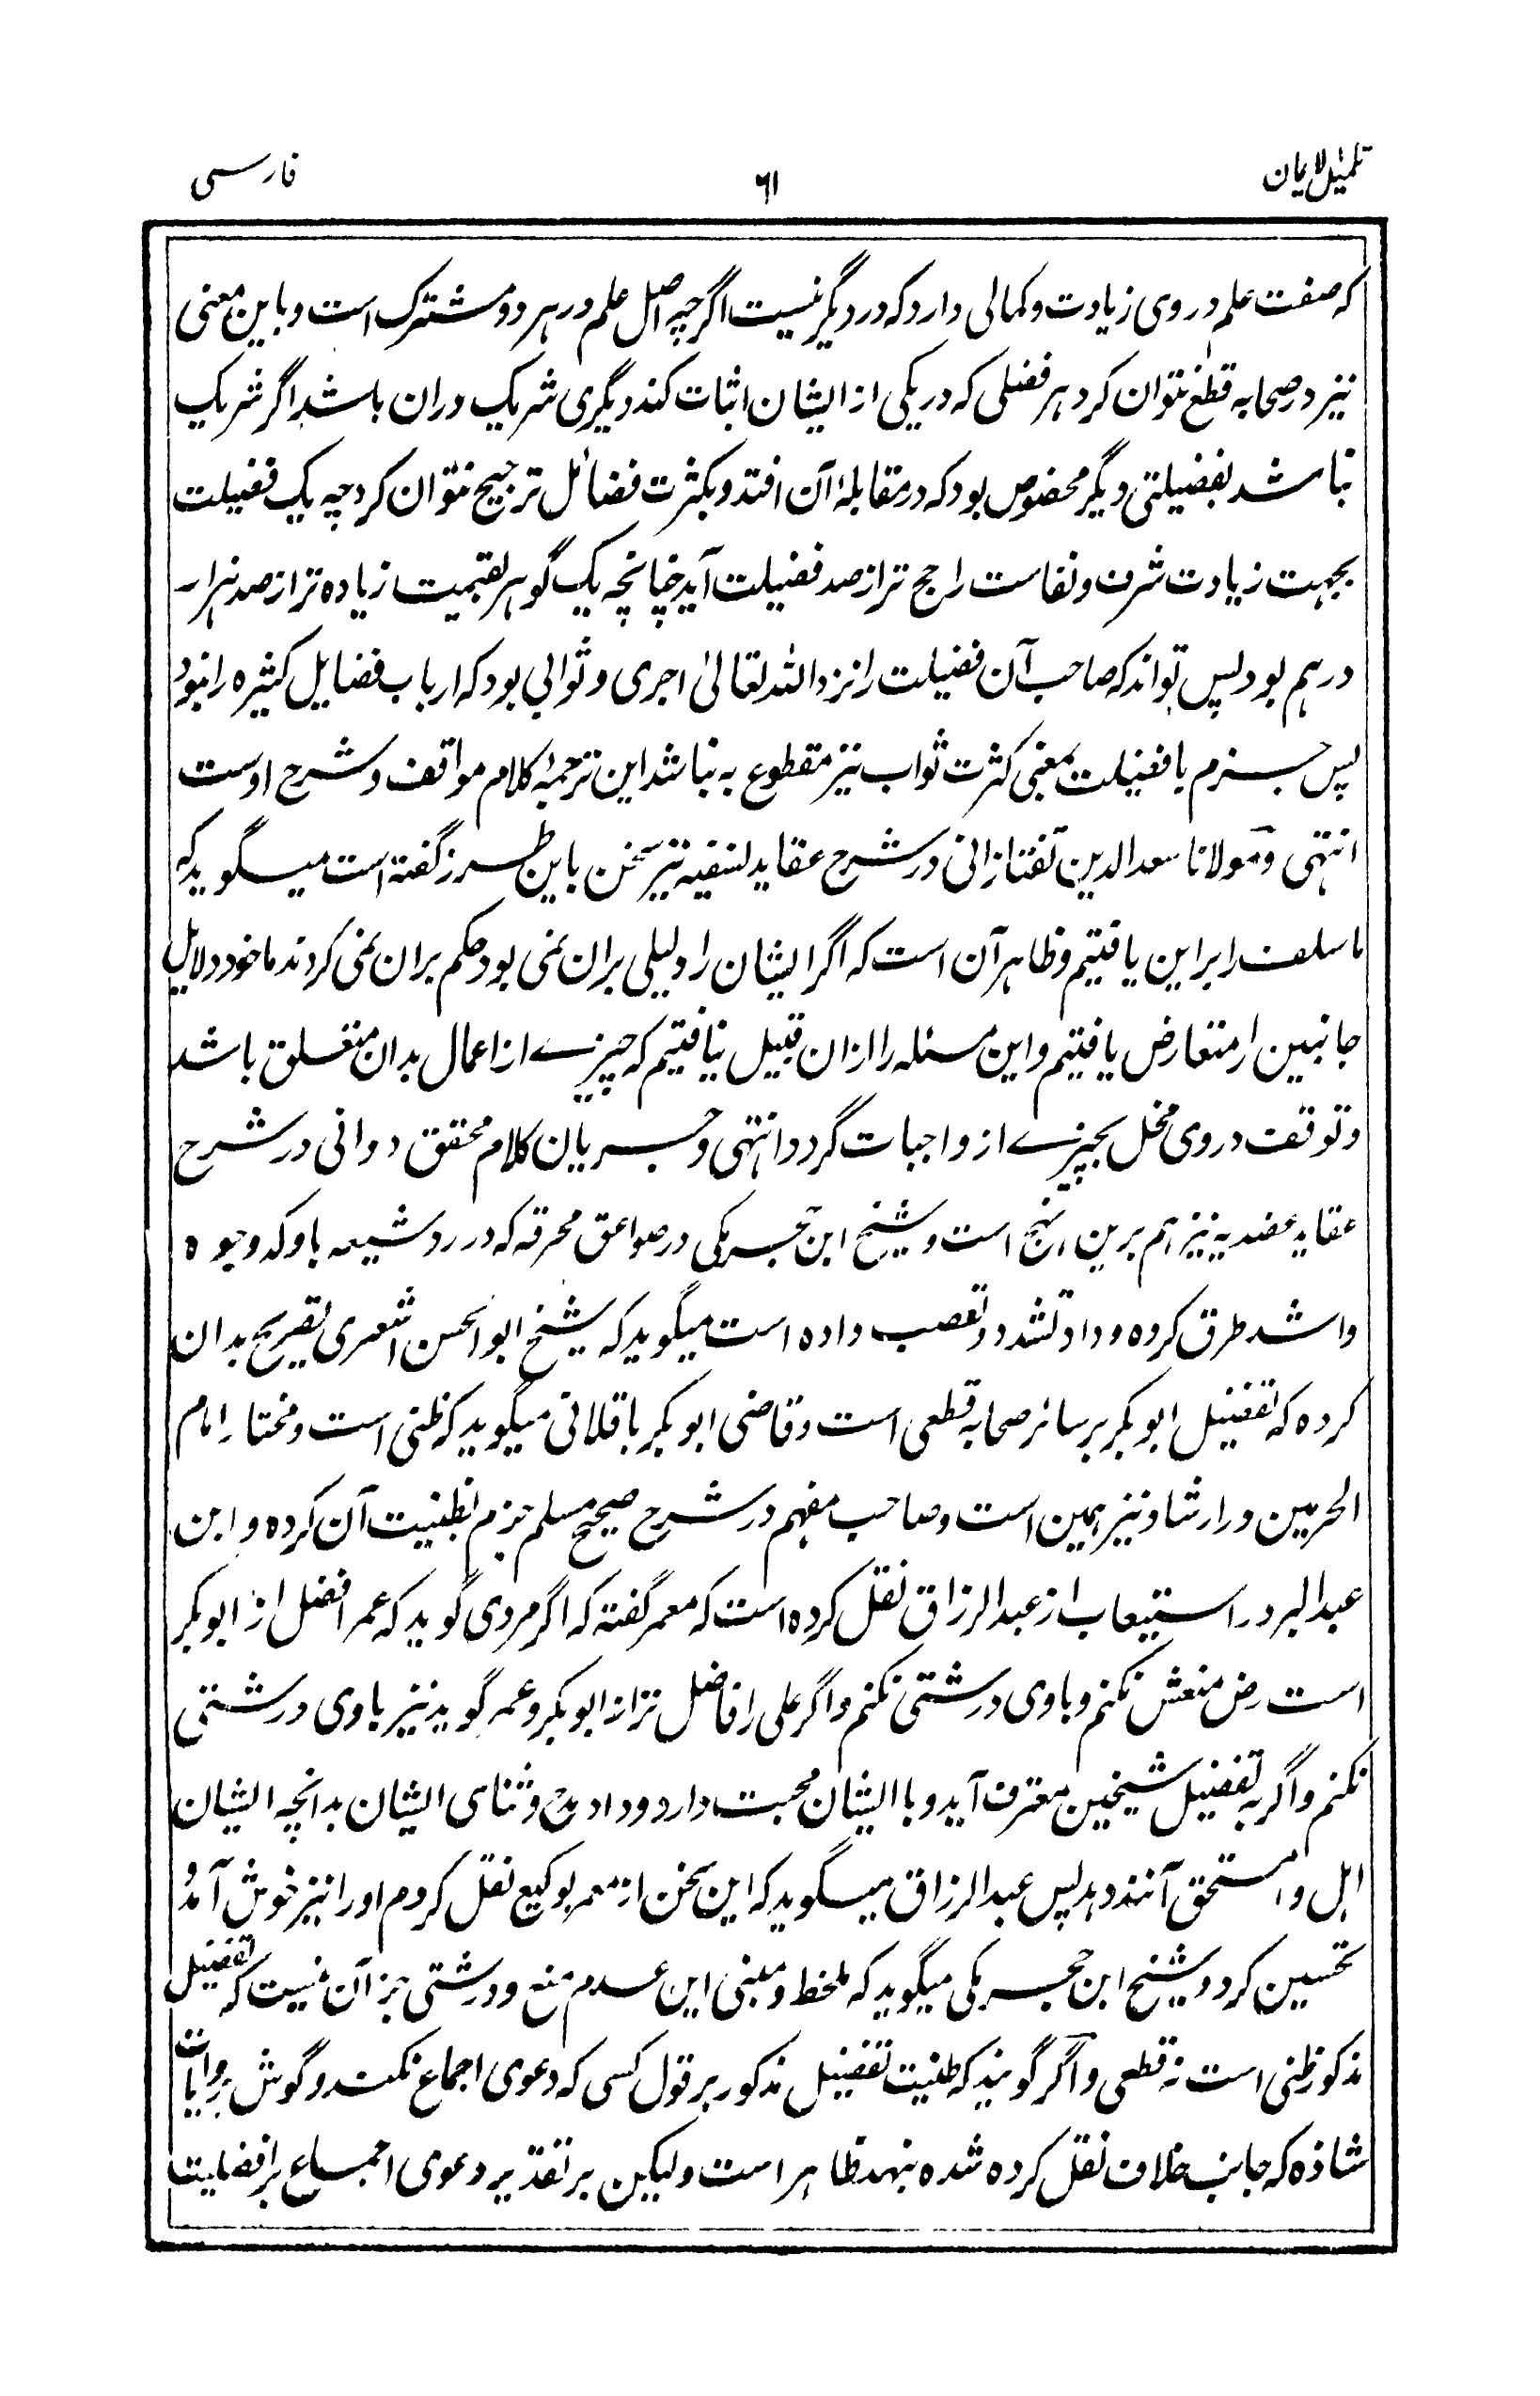 تکمیل الایمان ۶۱ فارسی
که صفت علم در وی زیادت و کمالی دارد که در دیگر نیست اگرچه اصل علم در هر دو مشترک است و باین معنی
نیز در صحابه قطع نتوان کرد هر فضلی که در یکی از ایشان اثبات کند دیگری شریک دران باشد اگر شریک
نباشد بفضیلتی دیگر مخصوص بود که در مقابلهٔ آن افتد و بکثرت فضائل ترجیح نتوان کرد چه یک فضیلت
بجهت زیادت شرف و نفاست راجح تر از صد فضیلت آید چنانچه یک گوهر بقیمت زیاده تر از صد هزار
درهم بود پس تواند که صاحب آن فضیلت را نزد الله تعالیٰ اجری و ثوابی بود که ارباب فضایل کثیره را نبود
پس جزم بافضیلت بمعنی کثرت ثواب نیز مقطوع به نباشد این ترجمهٔ کلام مواقف و شرح اوست
انتهی و مولانا سعدالدین تفتازانی در شرح عقاید نسفیه نیز سخن باین طرز گفته است میگوید که
ما سلف را براین یافتیم و ظاهر آن است که اگر ایشان را دلیلی بران نمی بود حکم بران نمی کردند ما خود دلایل
جانبین را متعارض یافتیم و این مسئله را ازان قبیل نیافتیم که چیزے از اعمال بدان متعلق باشد
و توقف در وی مخل بچیزے از واجبات گردد انتهی و جریان کلام محقق دوانی در شرح
عقاید عضدیه نیز هم برین نهج است و شیخ ابن حجر مکی در صواعق محرقه که در رد شیعه باوکد وجوه
و اشد طرق کرده و داد تشدد و تعصب داده است میگوید که شیخ ابوالحسن اشعری تصریح بدان
کرده که تفضیل ابوبکر بر سائر صحابه قطعی است و قاضی ابوبکر باقلانی میگوید که ظنی است و مختار امام
الحرمین در ارشاد نیز همین است و صاحب مفهم در شرح صحیح مسلم جزم بظنیت آن کرده و ابن
عبدالبر در استیعاب از عبدالرزاق نقل کرده است که معمر گفته که اگر مردی گوید که عمر افضل از ابوبکر
است رض منعش نکنم و باوی درشتی نکنم و اگر علی را فاضل تر از ابوبکر و عمر گوید نیز باوی درشتی
نکنم و اگر به تفضیل شیخین معترف آید و با ایشان محبت دارد و داد مدح و ثنای ایشان بدانچه ایشان
اهل و مستحق آنند دهد پس عبدالرزاق میگوید که این سخن از معمر بوکیع نقل کردم او را نیز خوش آمد و
تحسین کرد و شیخ ابن حجر مکی میگوید که ملحظ و مبنی این عدم منع و درشتی جز آن نیست که تفضیل
مذکور ظنی است نه قطعی و اگر گویند که ظنیت تفضیل مذکور بر قول کسی که دعوی اجماع نکند و گوش بروایات
شاذه که جانب خلاف نقل کرده شده بنهد ظاهر است ولیکن بر تقدیر دعوی اجماع بر افضلیت